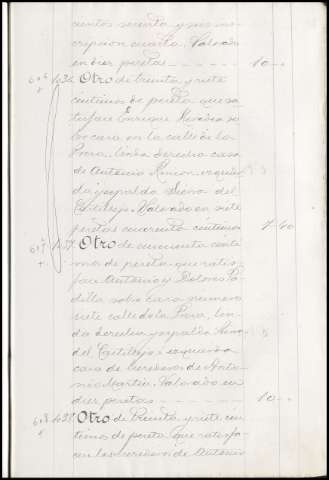 cientos sesenta y seis ins-
cripcion cuarta. Valorado
en diez pesetas - - - - - - 10 - -
606 Otro de treinta y siete
centimos de peseta que sa-
tisface Enrique so-
bre casa en la calle de la
Parra, linda derecha casa
de Antonio Rincon, izquier-
da y espalda del
Castillejo. Valorado en siete
pesetas cuarenta centimos 7-40
607 Otro de cincuenta centi-
mos de peseta que satis-
face Antonio y Dolores Pa-
dilla sobre casa numero
siete calle de la Parra, lin-
da derecha y espalda
del Castillejo e izquierda
casa de herederos de Anto-
nio Martin. Valorado en
diez pesetas - - - - - 10 - -
608 Otro de treinta y siete cen-
timos de peseta que satisfa-
cen los herederos de Antonio